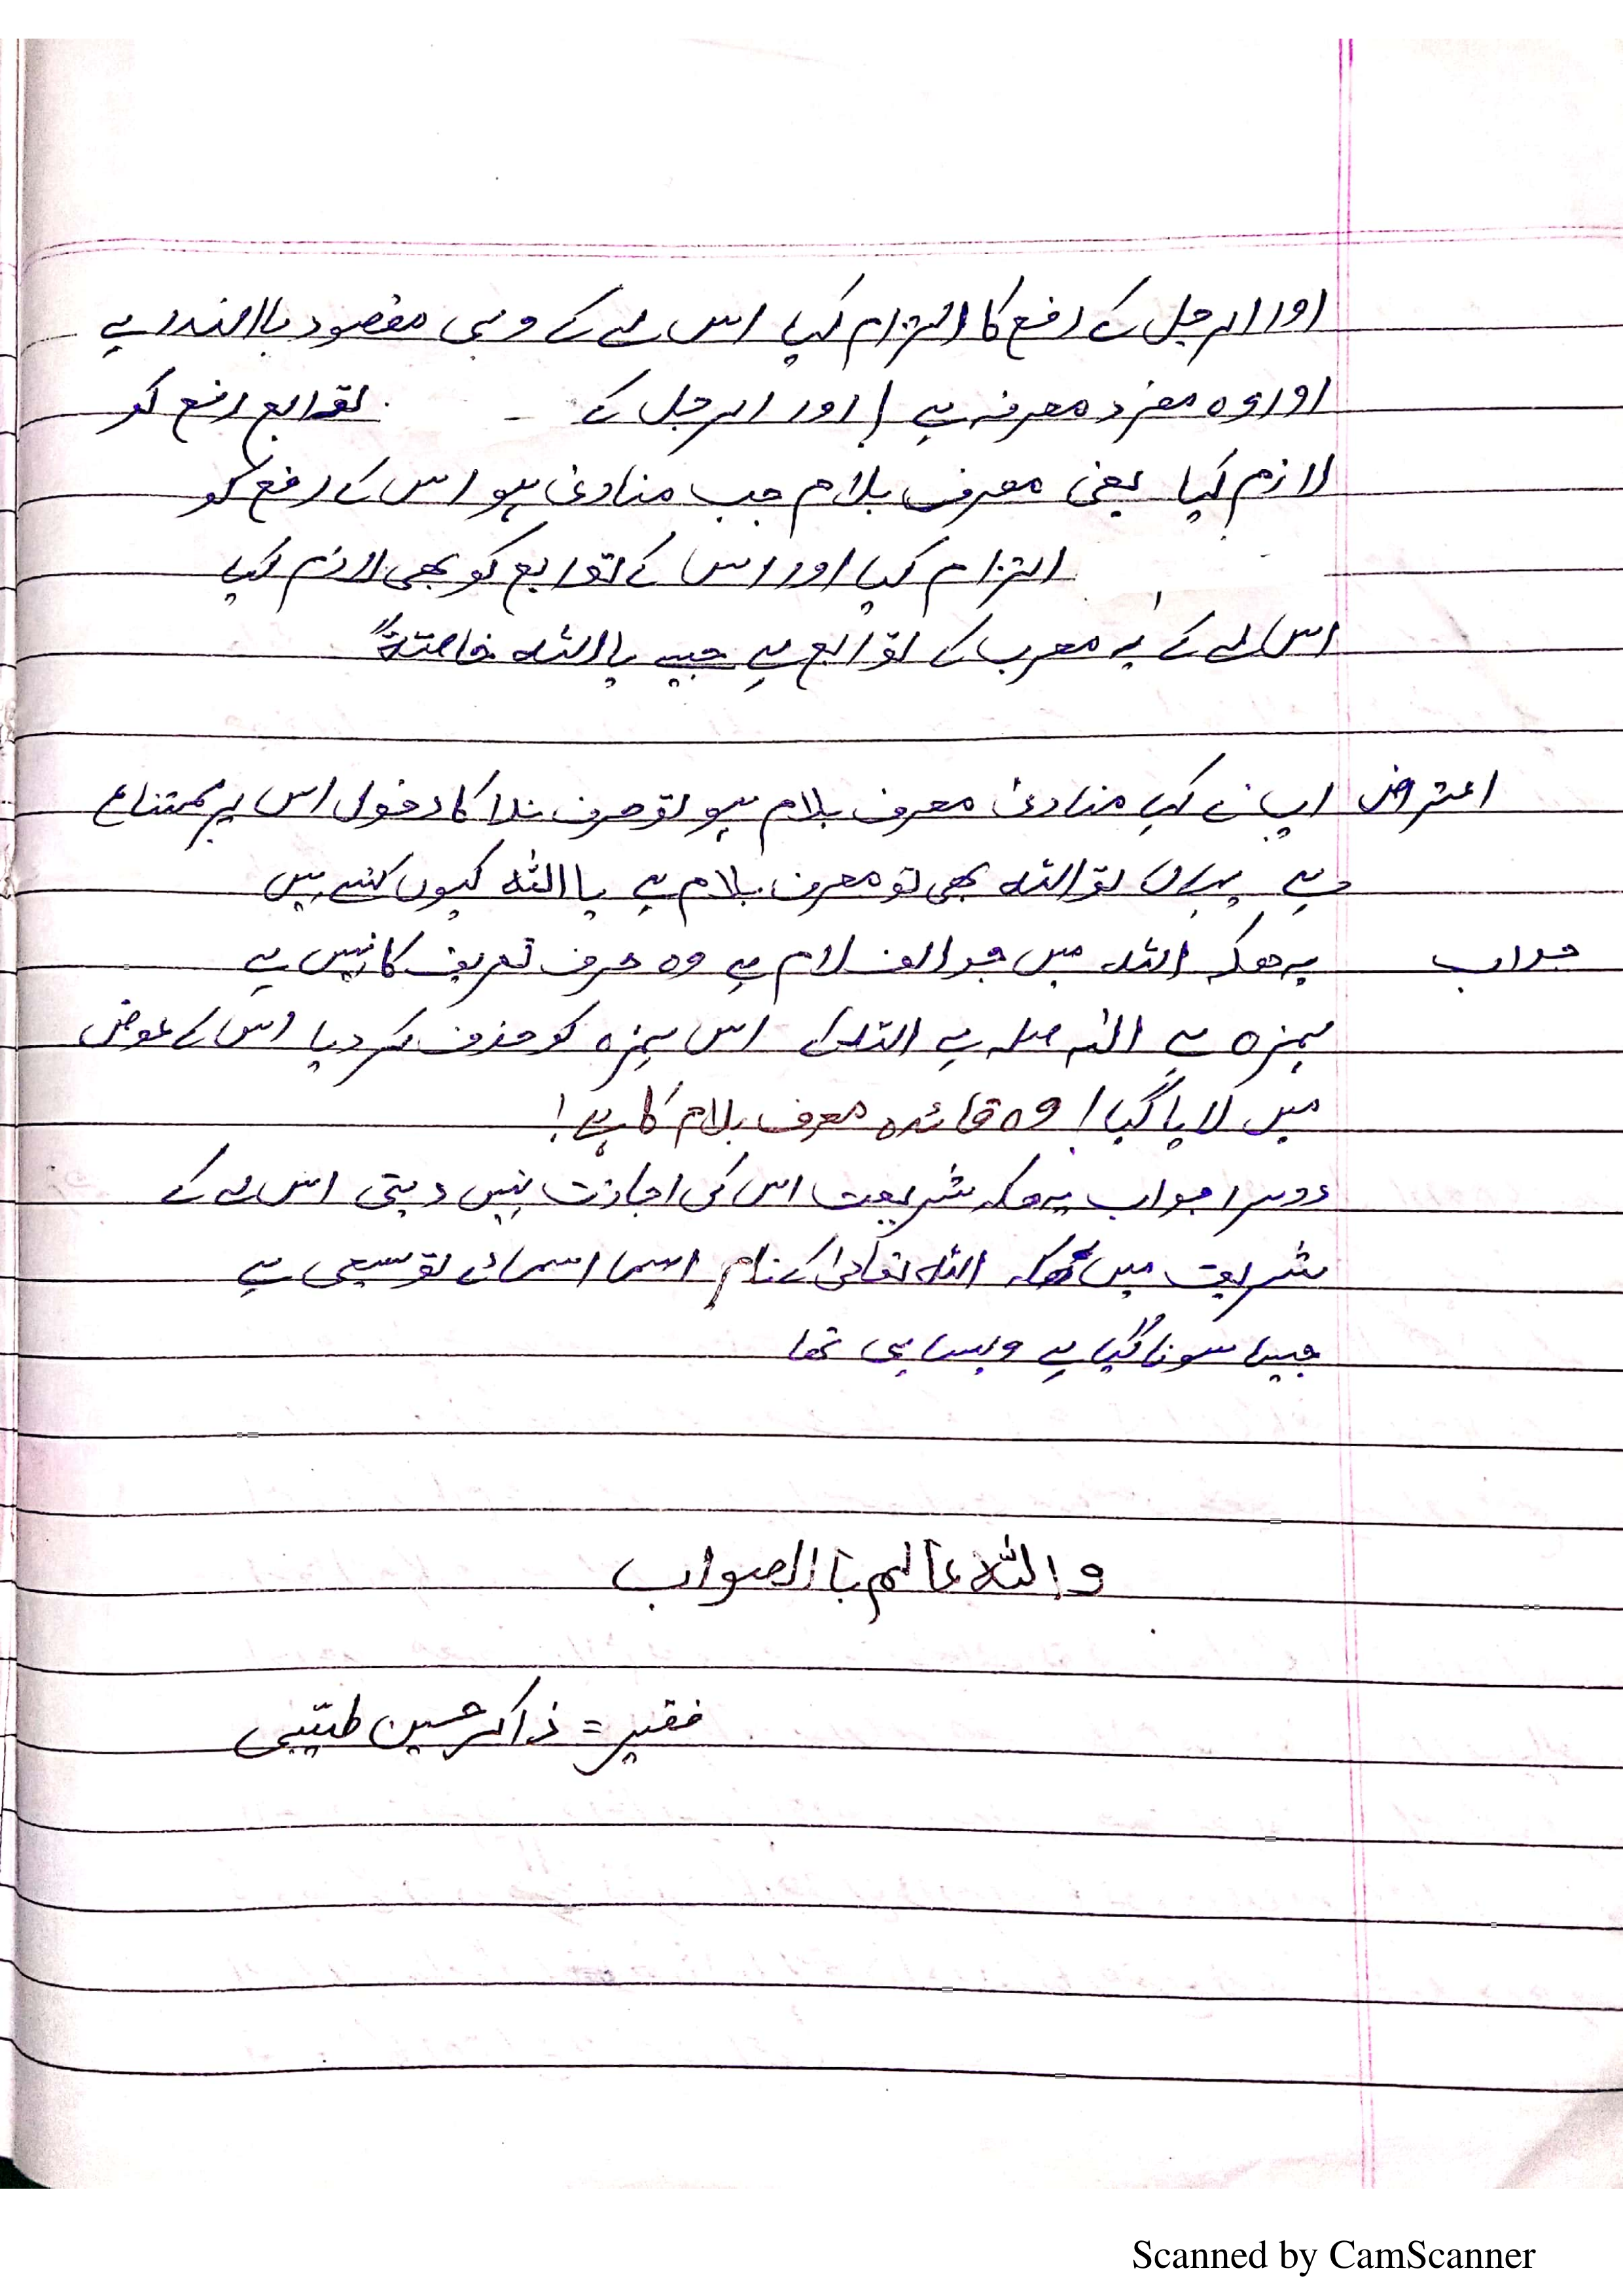 اور الرجل کے رفع کا التزام کیا اس لے کے وہی مقصود باالندا ہے
اور وہ مفرد معرفہ ہے / اور الرجل کے توابع رفع کو
لازم کیا یعنی معرف بلام جب منادیٰ ہو اس کے رفع کو
التزام کیا اور اس کے توابع کو بھی لازم کیا
اس لے کے یہ معرب کے توابع ہے جیسے یااللہ خاصتہً
اعتراض اپ نے کہا منادیٰ معرف بلام ہو تو حرف ندا کا دخول اس پر ممتناع
ہے یہاں تو اللہ بھی تو معرف بلام ہے یااللہ کیوں کہتے ہیں
جواب یہ ھیکہ اللہ میں جو الف لام ہے وہ حرف تعریف کا نہیں ہے
ہمزہ ہے اس ہمزہ کو حذف کر دیا اس کے عوض
میں لایا گیا / وہ قائدہ معرف بلام کا ہے!
دوسرا جواب یہ ھیکہ شریعت اس کی اجازت نہیں دیتی اس لے کے
شریعت میں ھیکہ اللہ تعالیٰ کے نام اسما اسمائے توسیعی ہے
جیسا سونا گیا ہے ویسا ہی تھا
واللہ عالم باالصواب
فقیر = ذاکر حسین طیّبی
Scanned by CamScanner